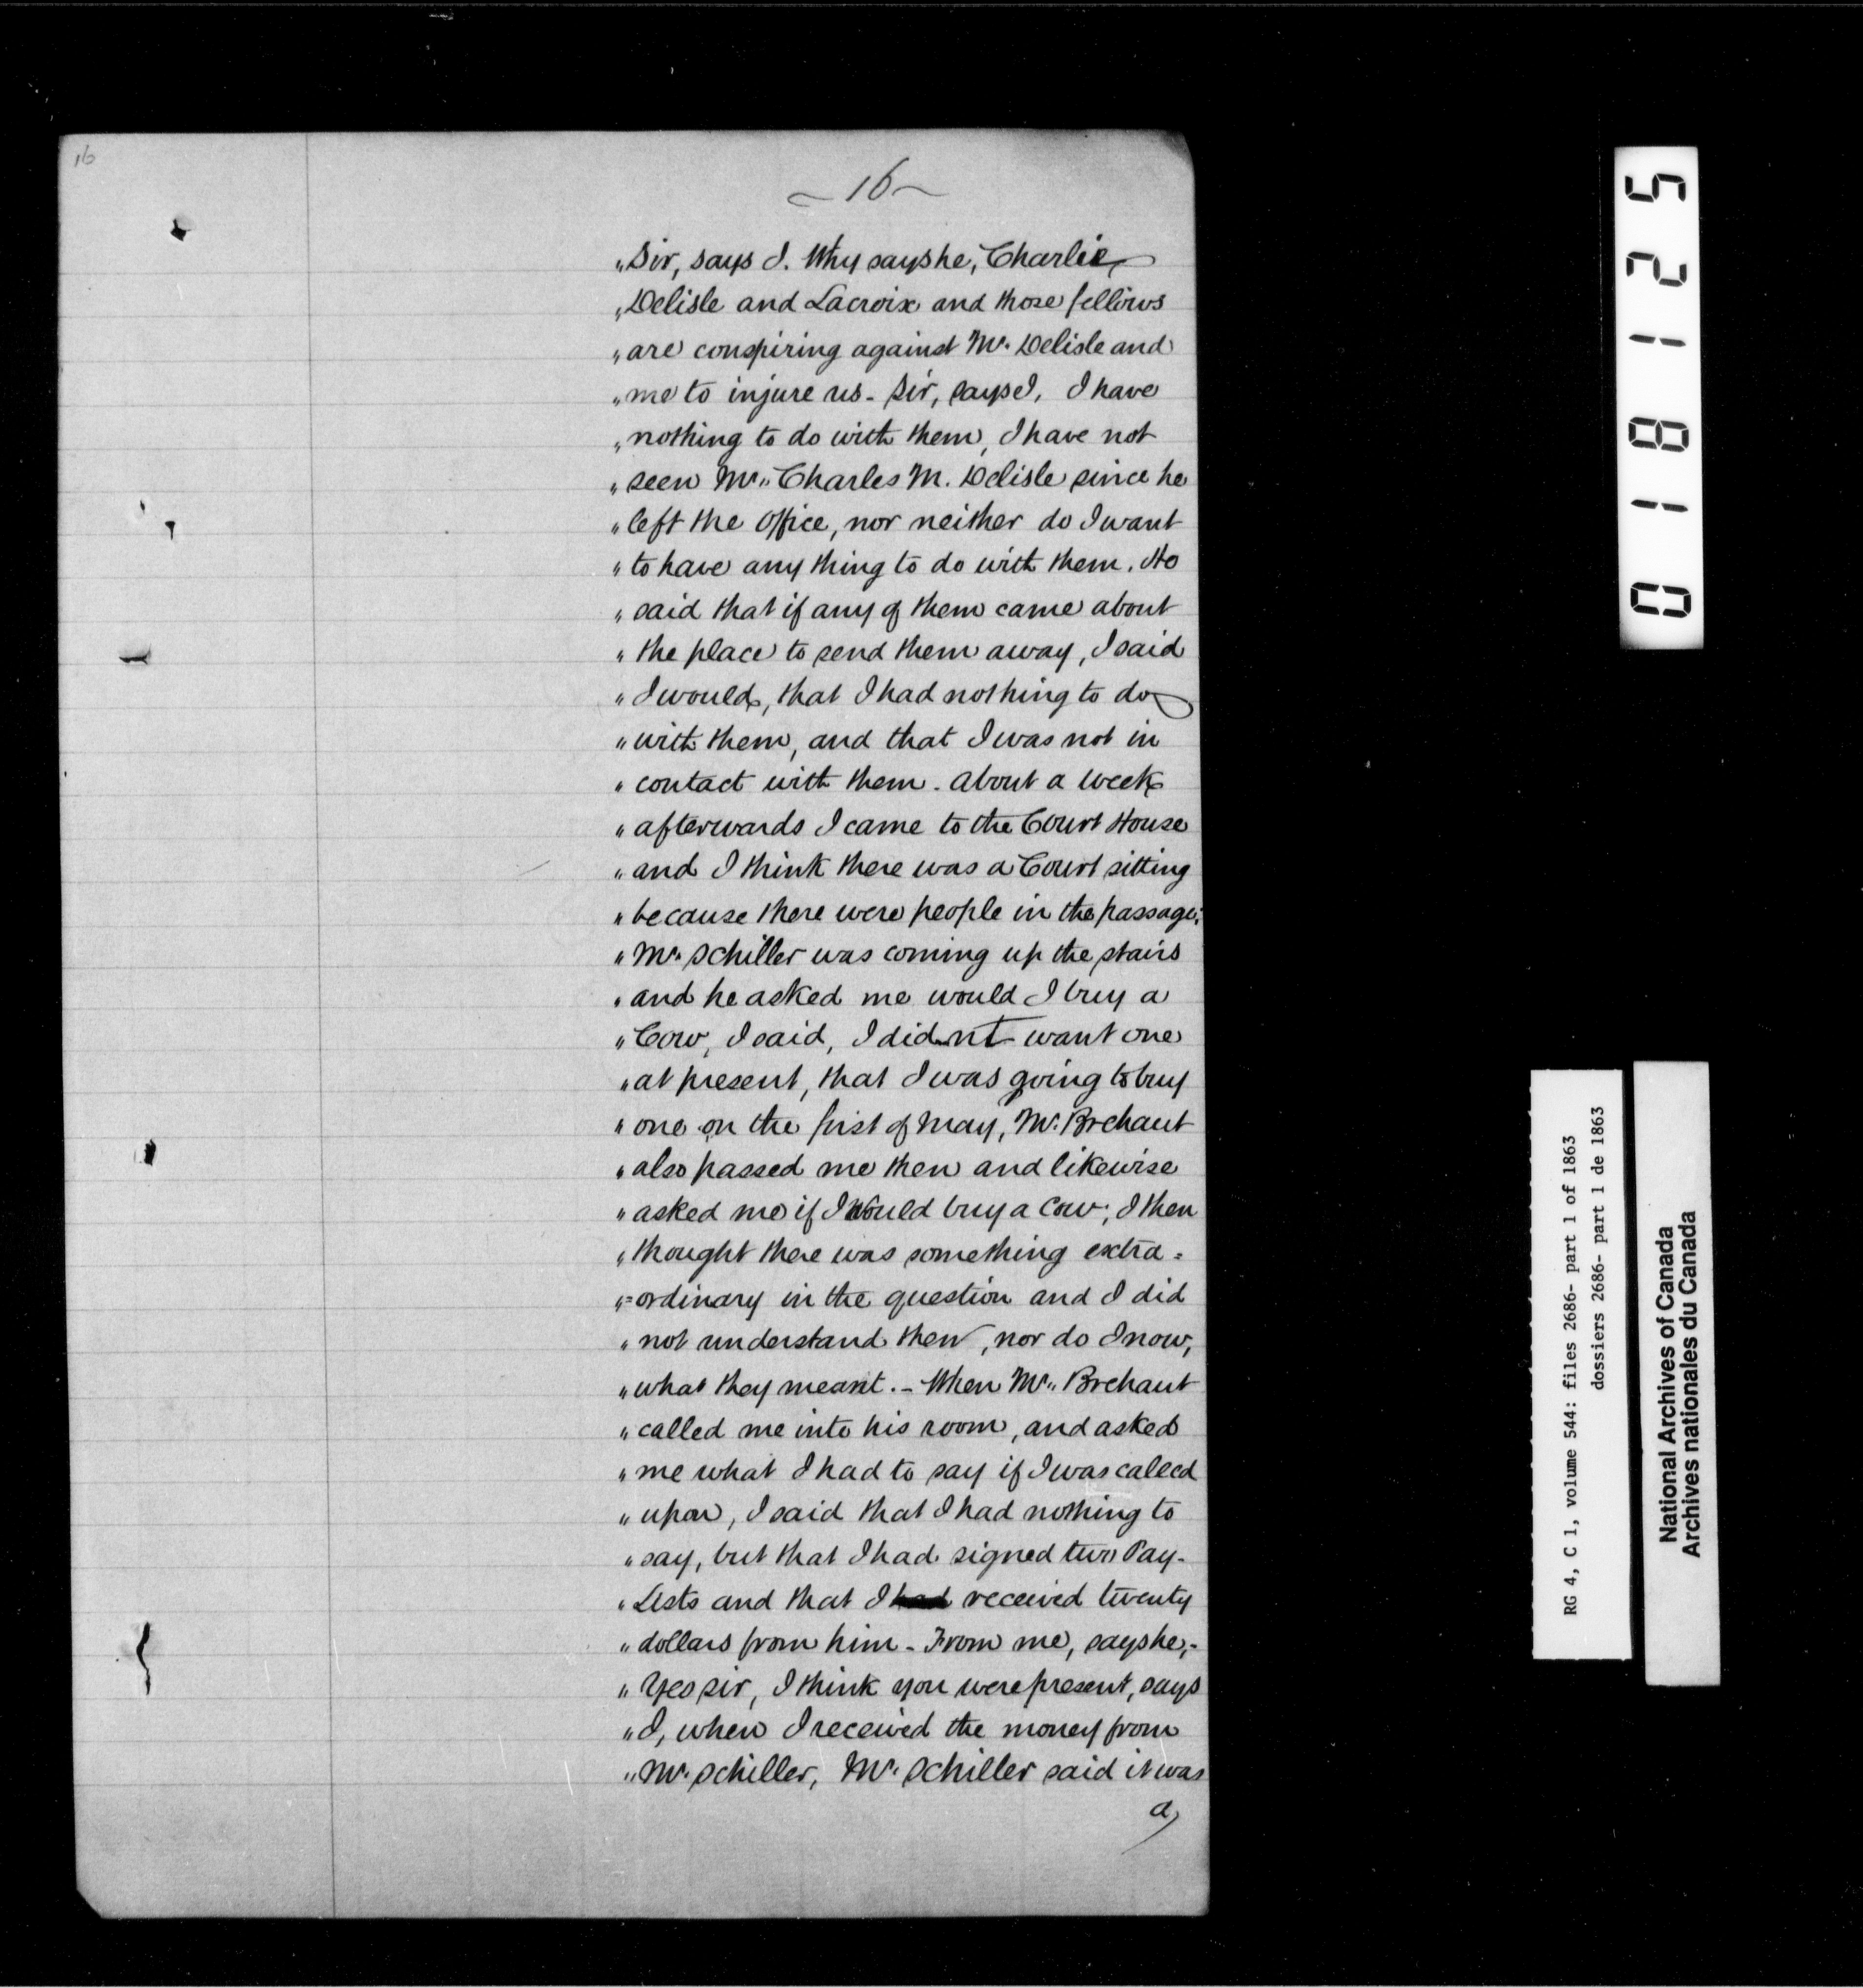 16
~16~
"Sir, says I. Why says he, Charlie
"Delisle and Lacroix and those fellows
"are conspiring against Mr. Delisle and
"me to injure us - Sir, says I, I have
"nothing to do with them, I have not
"seen Mr. Charles M. Delisle since he
"left the Office, nor neither do I want
"to have any thing to do with them. He
"said that if any of them came about
"the place to send them away, I said
"I would, that I had nothing to do
"with them, and that I was not in
"contact with them. About a week
"afterwards I came to the Court House
"and I think there was a Court sitting
"because there were people in the passage;
"Mr. Schiller was coming up the stairs
"and he asked me would I buy a
"Cow, I said, I didnt want one
"at present, that I was going to buy
"one on the first of May, Mr. Brehaut
"also passed me then and likewise
"asked me if I would buy a Cow; I then
"thought there was something extra=
"=ordinary in the question and I did
"not understand then, nor do I now,
"what they meant. - When Mr. Brehaut
"called me into his room, and asked
"me what I had to say if I was called
"upon, I said that I had nothing to
"say, but that I had signed two Pay-
"Lists and that I had received twenty
"dollars from him - From me, says he,-
"Yes sir, I think you were present, says
"I, when I received the money from
"Mr. Schiller, Mr. Schiller said it was
a
018125
RG 4, C 1, volume 544: files 2686- part 1 of 1863
dossiers 2686- part 1 de 1863
National Archives of Canada
Archives nationales du Canada